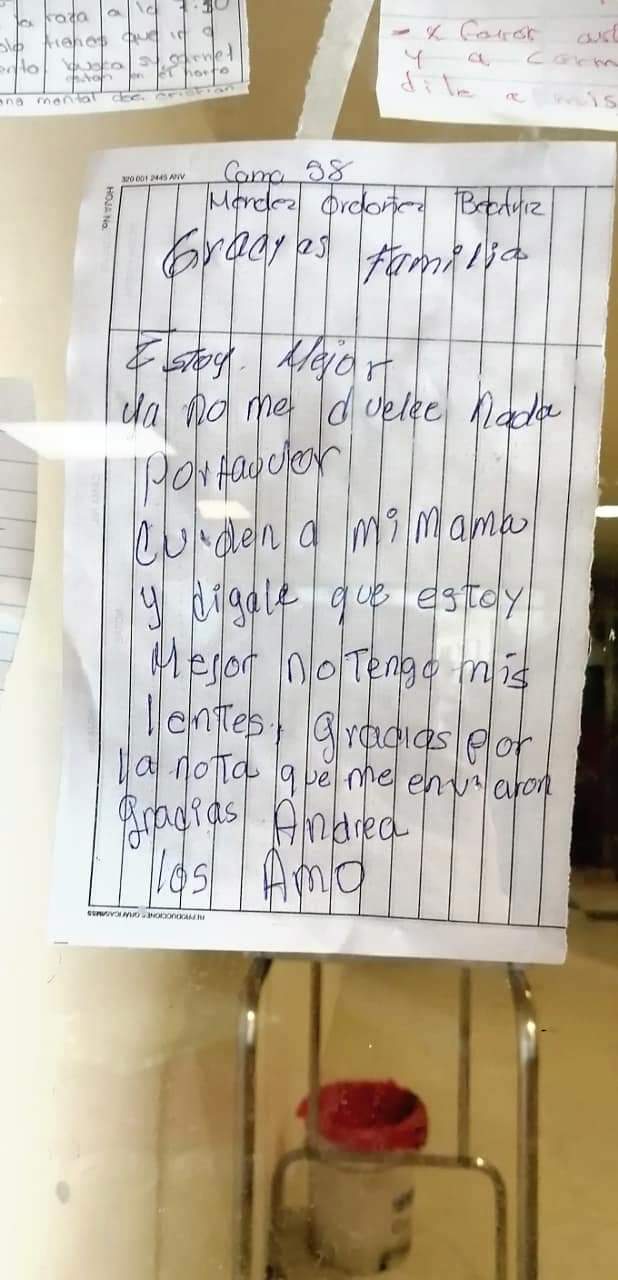 la raza a la 7:30
tienes que ir a
busca su carnet
están en el horno
mental doc cristian
y a
dile a mis
320 001 2445 ANV
HOJA No.
Cama 38
Mendez Ordoñez Beatriz
Gracyas familia
Estoy. Mejor
ya no me duelee nada
Portavor
Cuiden a mi mama
y digale que estoy
Mejor no Tengo mis
lentes, gracias por
la nota que me enviaron
gracias Andrea
los AMO